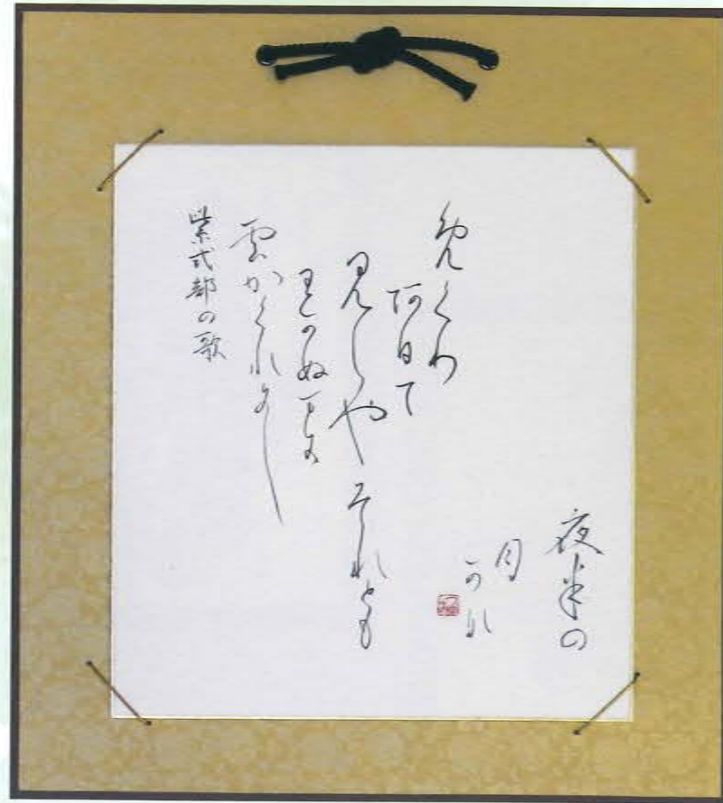 めくり
阿日て
見しやそれとも
わかぬまに
雲かくれにし
夜半の
月
かな
紫式部の歌